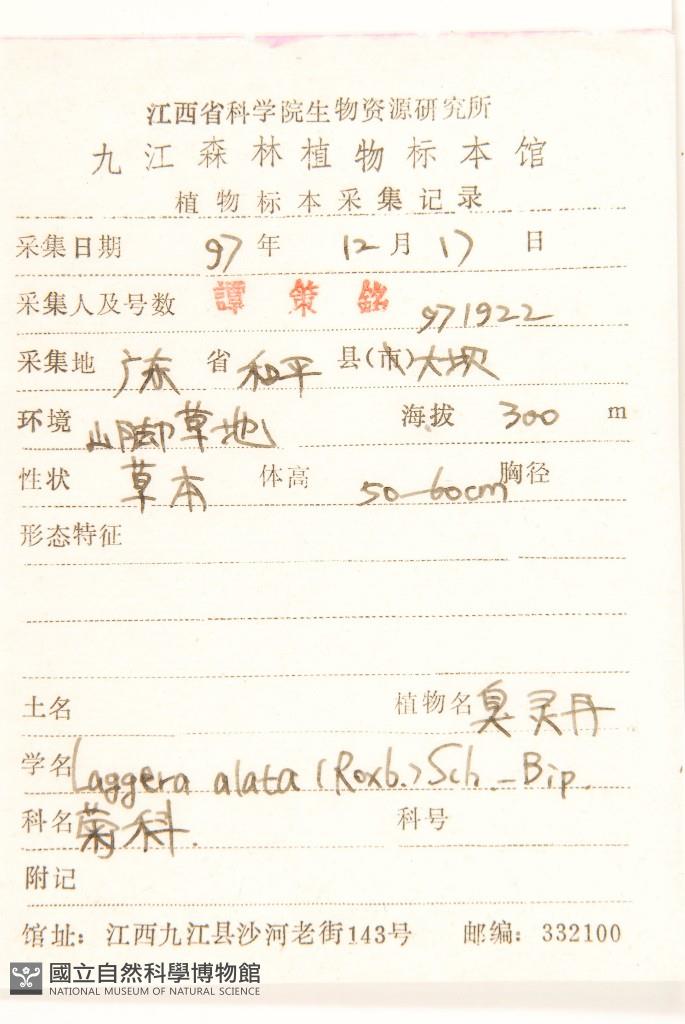 江西省科学院生物资源研究所
九江森林植物标本馆
植物标本采集记录
采集日期 97 年 12 月 17 日
采集人及号数 譚策銘 971922
采集地 广东 省 和平 县(市) 大坝
环境 山脚草地 海拔 300 m
性状 草本 体高 50-60cm 胸径
形态特征
土名 植物名 臭灵丹
学名 Laggera alata (Roxb.) Sch.-Bip.
科名 菊科. 科号
附记
馆址：江西九江县沙河老街143号 邮编：332100
國立自然科學博物館
NATIONAL MUSEUM OF NATURAL SCIENCE